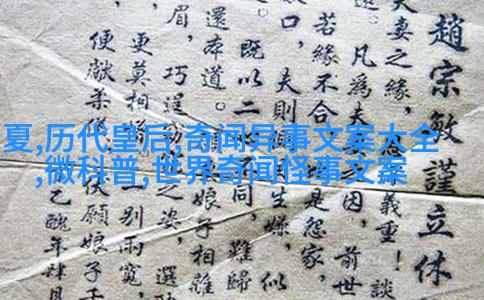 趙宗敏謹立休
夫妻之緣，義重！談
凡為夫之因，前世
若緣不合是怨家，
口，夫則生嫌，似
既以二同，難歸
還本道。娘子相離
眉，巧逞之姿，選
更莫相一別兩寬，
便獻柔儀伏願娘子千
乙醜年肆月
夏,历代皇后,奇闻异事文案大全
,微科普,世界奇闻怪事文案